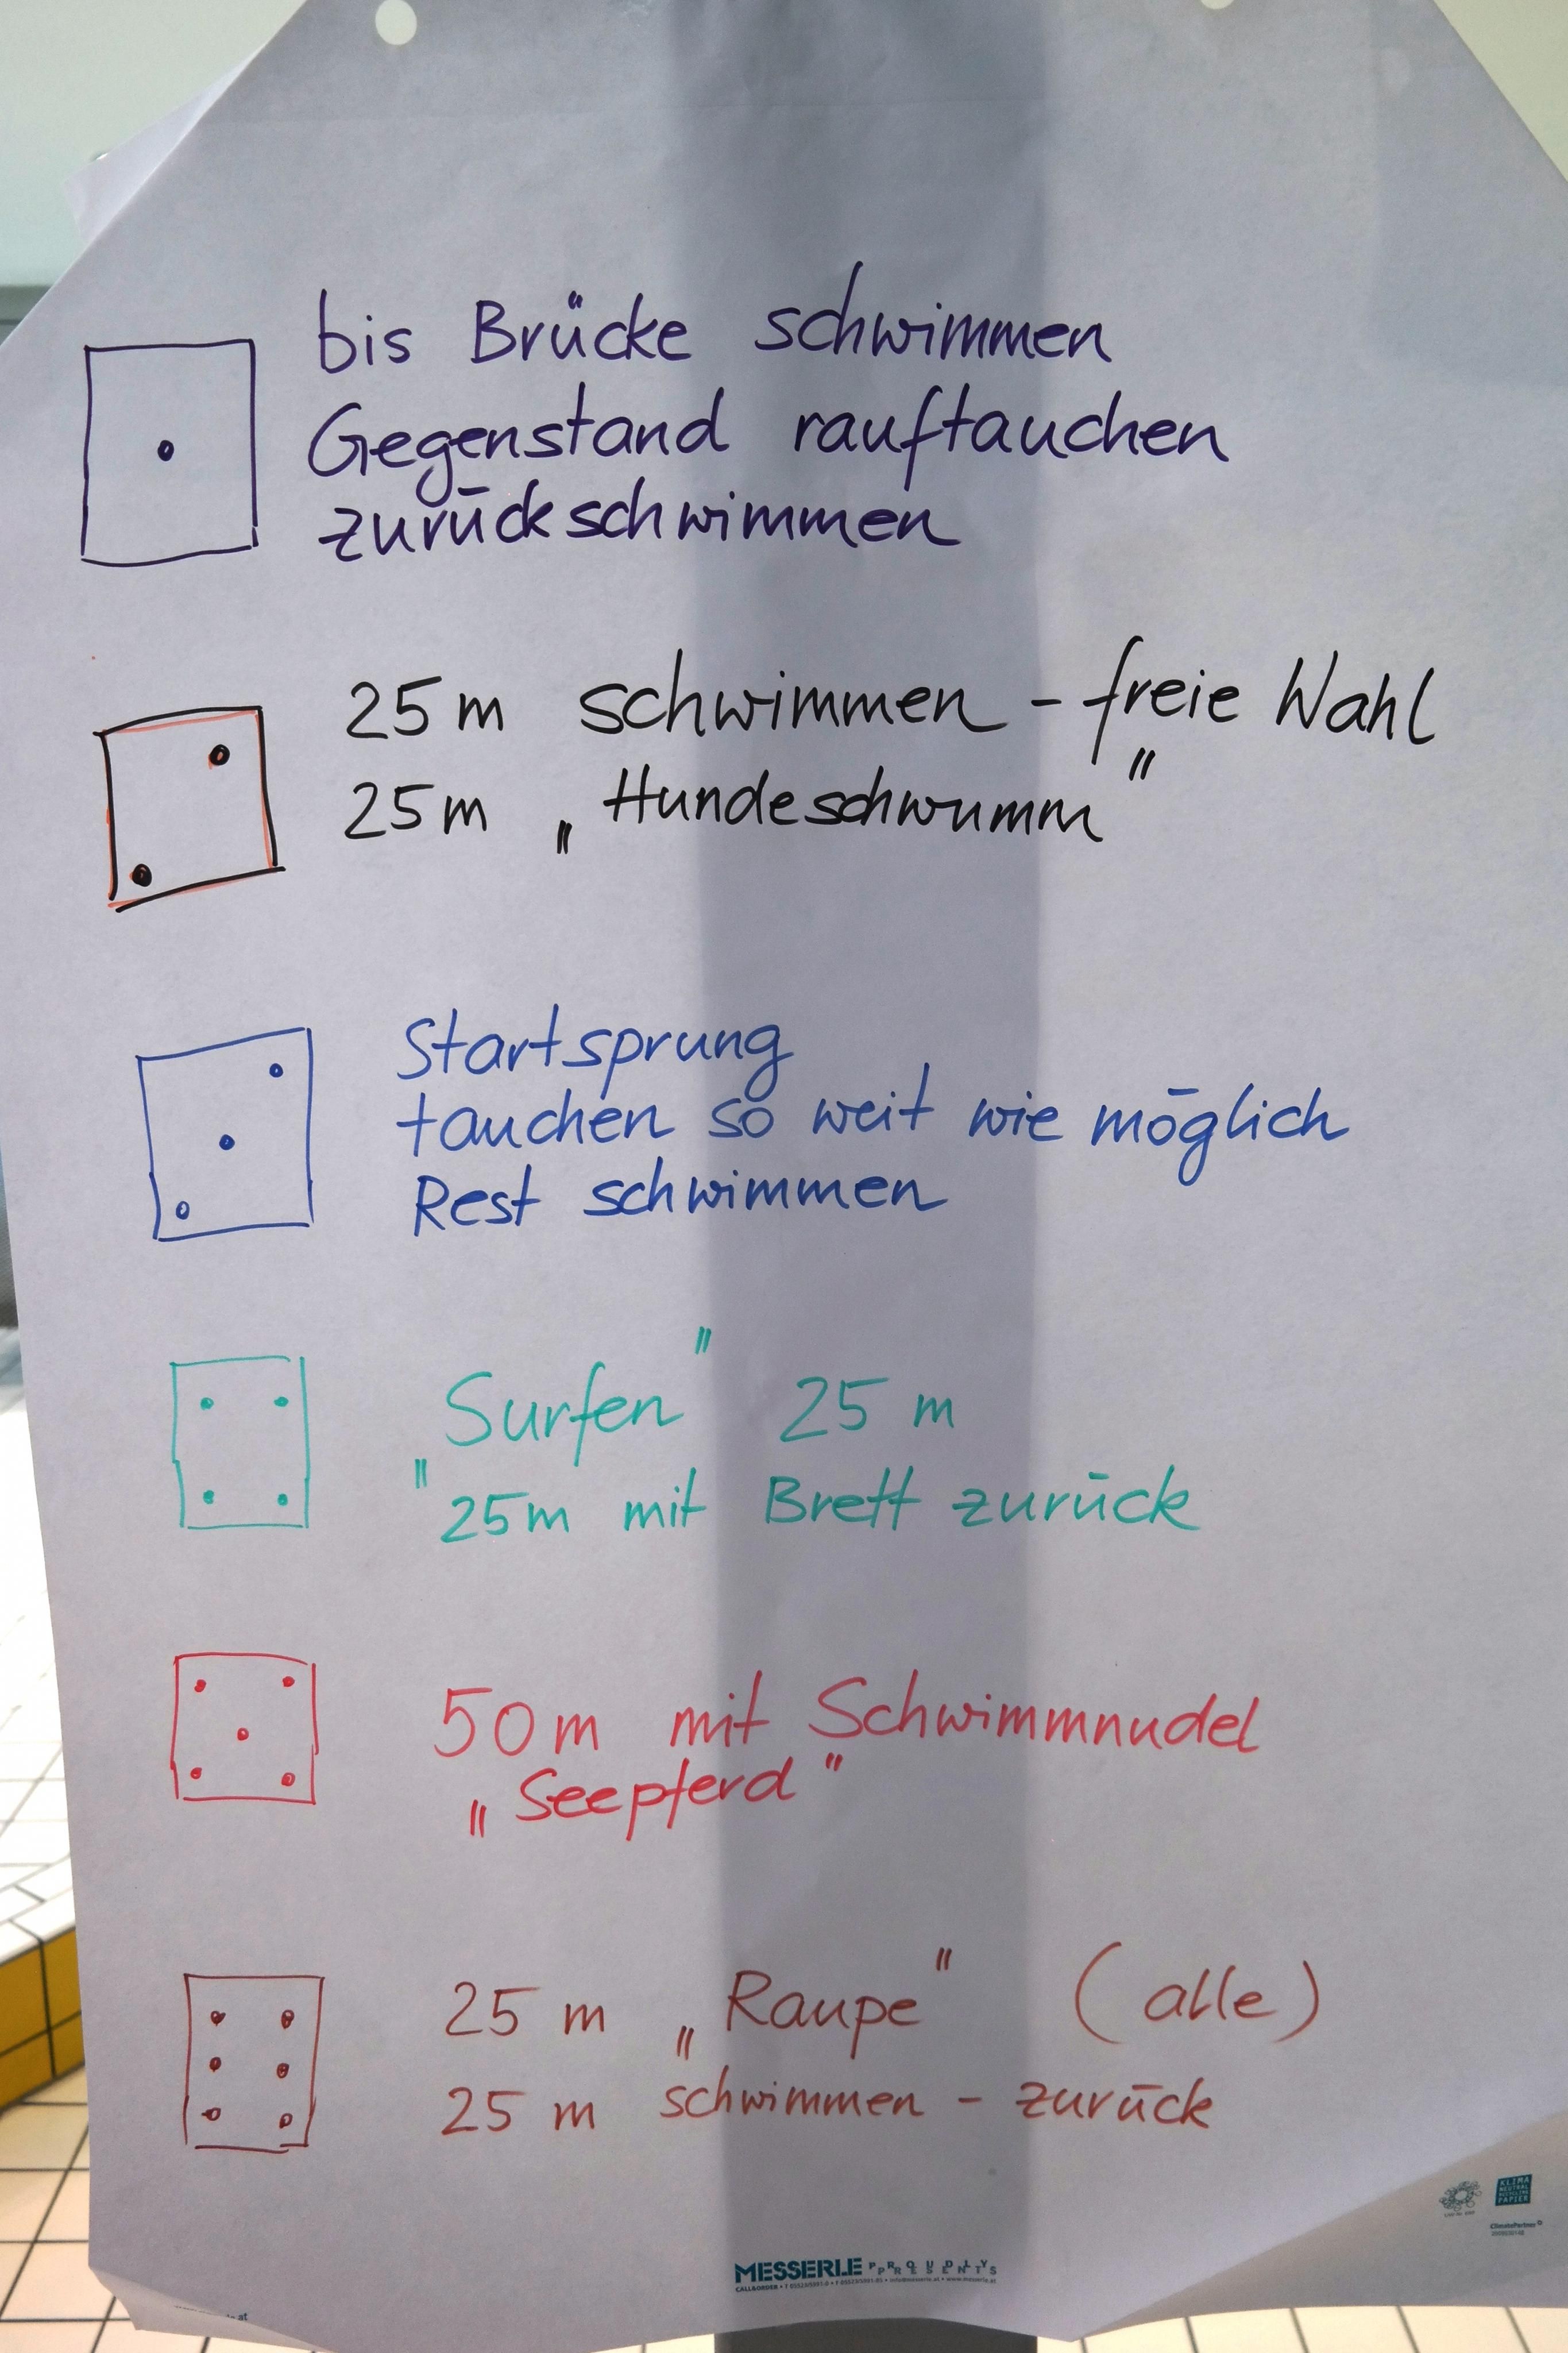 bis Brücke schwimmen
Gegenstand rauftauchen
zurückschwimmen
25 m schwimmen - freie Wahl
25 m „Hundeschwumm"
Startsprung
tauchen so weit wie möglich
Rest schwimmen
"Surfen" 25 m
25 m mit Brett zurück
50 m mit Schwimmnudel
„Seepferd"
25 m „Raupe" (alle)
25 m schwimmen - zurück
KLIMA
NEUTRAL
RECYCLING
PAPIER
ClimatePartner
MESSERLE PROUDLY PRESENTS